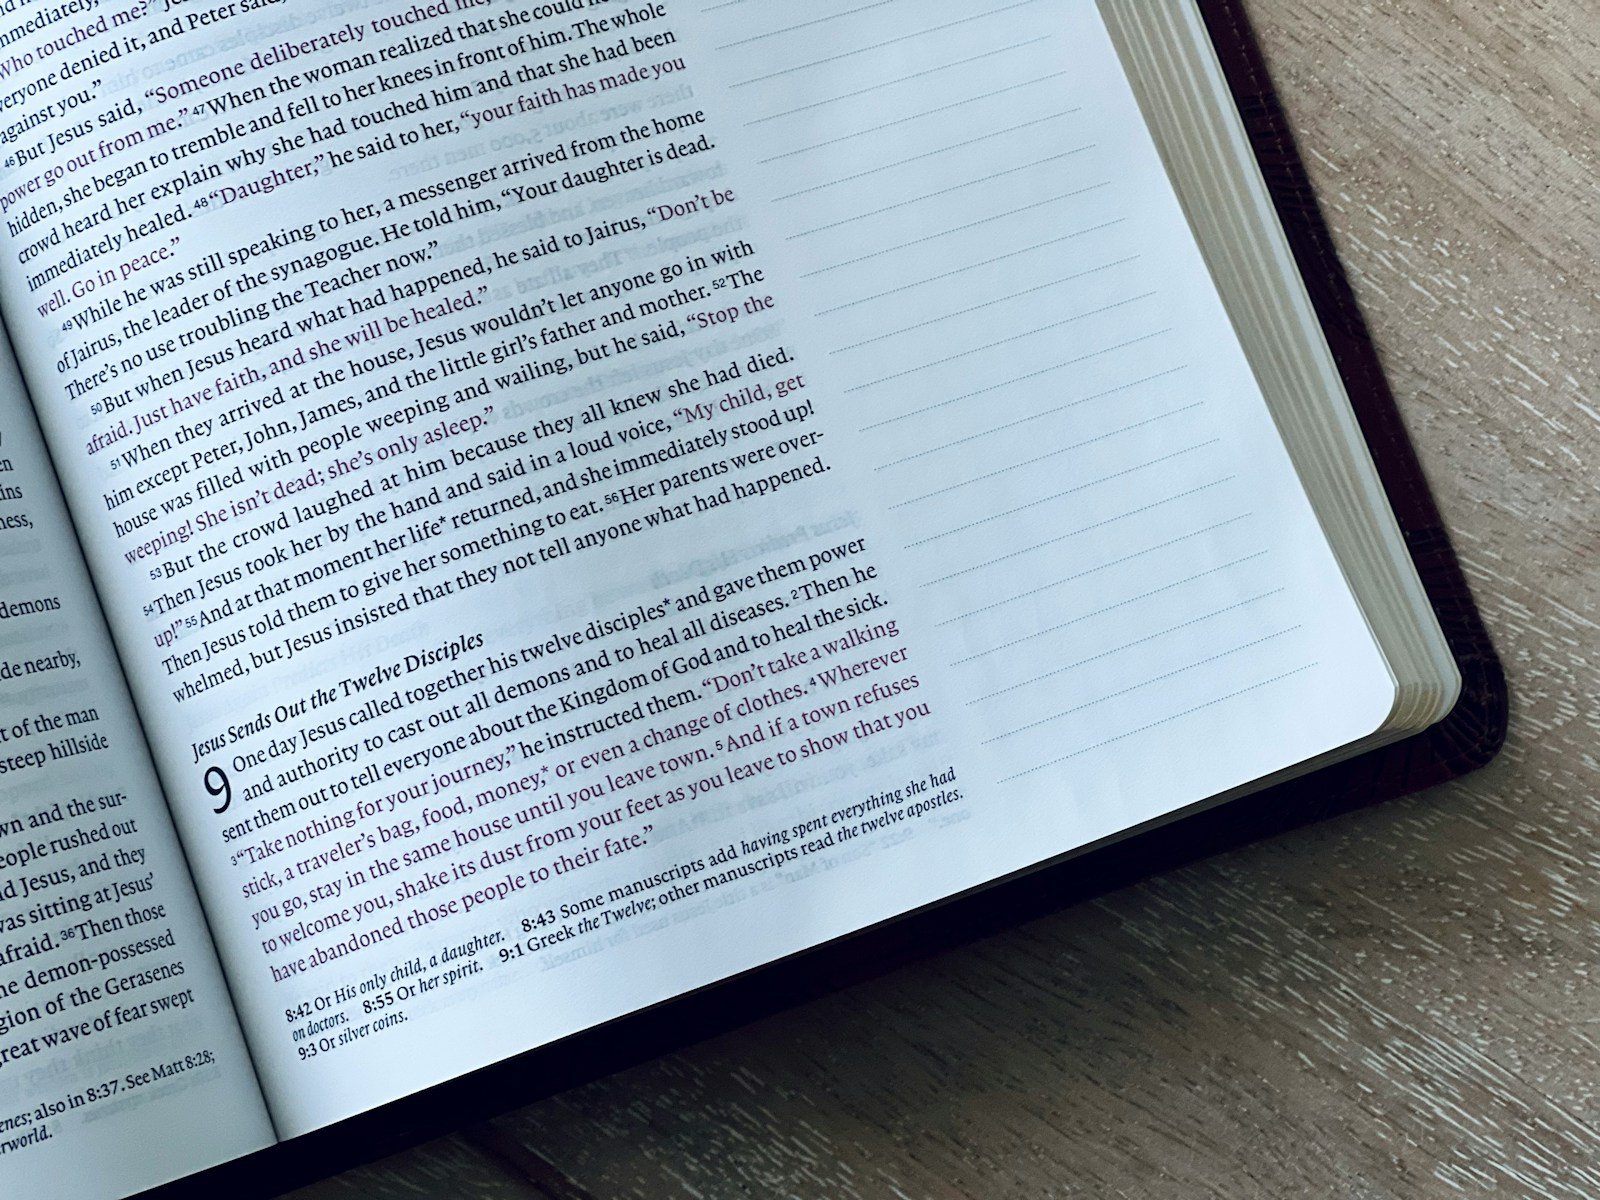 en
ins
ness,
demons
de nearby,
t of the man
steep hillside
wn and the sur-
eople rushed out
d Jesus, and they
was sitting at Jesus’
afraid. 36Then those
he demon-possessed
gion of the Gerasenes
reat wave of fear swept
enes; also in 8:37. See Matt 8:28;
rworld.
mmediately,
Who touched me?”
eryone denied it, and Peter said,
against you.”
46But Jesus said, “Someone deliberately touched me,
power go out from me.” 47When the woman realized that she could
hidden, she began to tremble and fell to her knees in front of him. The whole
crowd heard her explain why she had touched him and that she had been
immediately healed. 48“Daughter,” he said to her, “your faith has made you
well. Go in peace.”
49While he was still speaking to her, a messenger arrived from the home
of Jairus, the leader of the synagogue. He told him, “Your daughter is dead.
There’s no use troubling the Teacher now.”
50But when Jesus heard what had happened, he said to Jairus, “Don’t be
afraid. Just have faith, and she will be healed.”
51When they arrived at the house, Jesus wouldn’t let anyone go in with
him except Peter, John, James, and the little girl’s father and mother. 52The
house was filled with people weeping and wailing, but he said, “Stop the
weeping! She isn’t dead; she’s only asleep.”
53But the crowd laughed at him because they all knew she had died.
54Then Jesus took her by the hand and said in a loud voice, “My child, get
up!” 55And at that moment her life* returned, and she immediately stood up!
Then Jesus told them to give her something to eat. 56Her parents were over-
whelmed, but Jesus insisted that they not tell anyone what had happened.
Jesus Sends Out the Twelve Disciples
9 One day Jesus called together his twelve disciples* and gave them power
and authority to cast out all demons and to heal all diseases. 2Then he
sent them out to tell everyone about the Kingdom of God and to heal the sick.
3“Take nothing for your journey,” he instructed them. “Don’t take a walking
stick, a traveler’s bag, food, money,* or even a change of clothes. 4Wherever
you go, stay in the same house until you leave town. 5And if a town refuses
to welcome you, shake its dust from your feet as you leave to show that you
have abandoned those people to their fate.”
8:42 Or His only child, a daughter. 8:43 Some manuscripts add having spent everything she had
on doctors. 8:55 Or her spirit. 9:1 Greek the Twelve; other manuscripts read the twelve apostles.
9:3 Or silver coins.